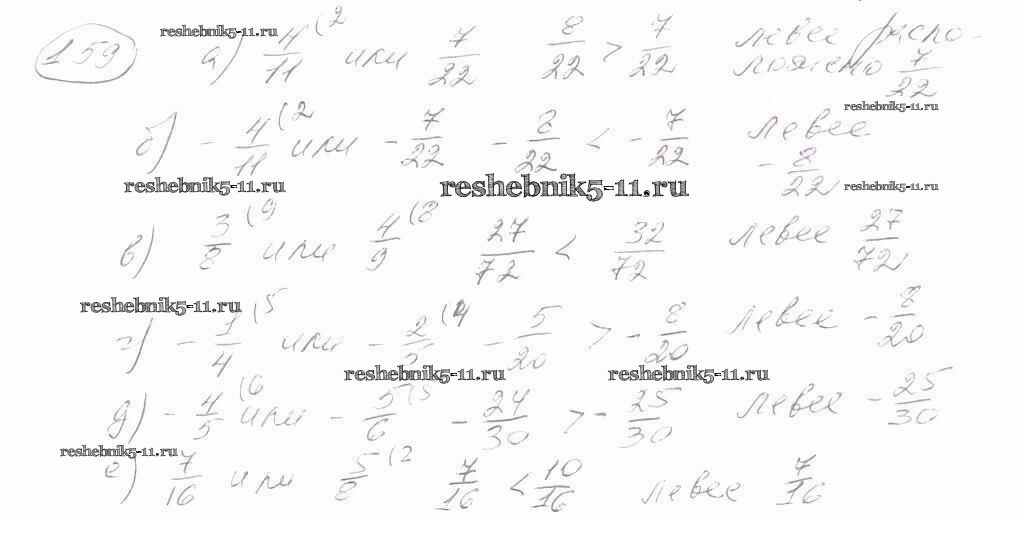 159 reshebnik5-11.ru
а) 4/11 (2 или 7/22 8/22 > 7/22 левее распо-
ложено 7/22
reshebnik5-11.ru
б) - 4/11 (2 или - 7/22 - 8/22 < - 7/22 левее
- 8/22
reshebnik5-11.ru reshebnik5-11.ru reshebnik5-11.ru
в) 3/8 (9 или 4/9 (8 27/72 < 32/72 левее 27/72
reshebnik5-11.ru
г) - 1/4 (5 или - 2/5 (4 - 5/20 > - 8/20 левее - 8/20
reshebnik5-11.ru reshebnik5-11.ru
д) - 4/5 (6 или - 5/6 (5 - 24/30 > - 25/30 левее - 25/30
reshebnik5-11.ru
е) 7/16 или 5/8 (2 7/16 < 10/16 левее 7/16